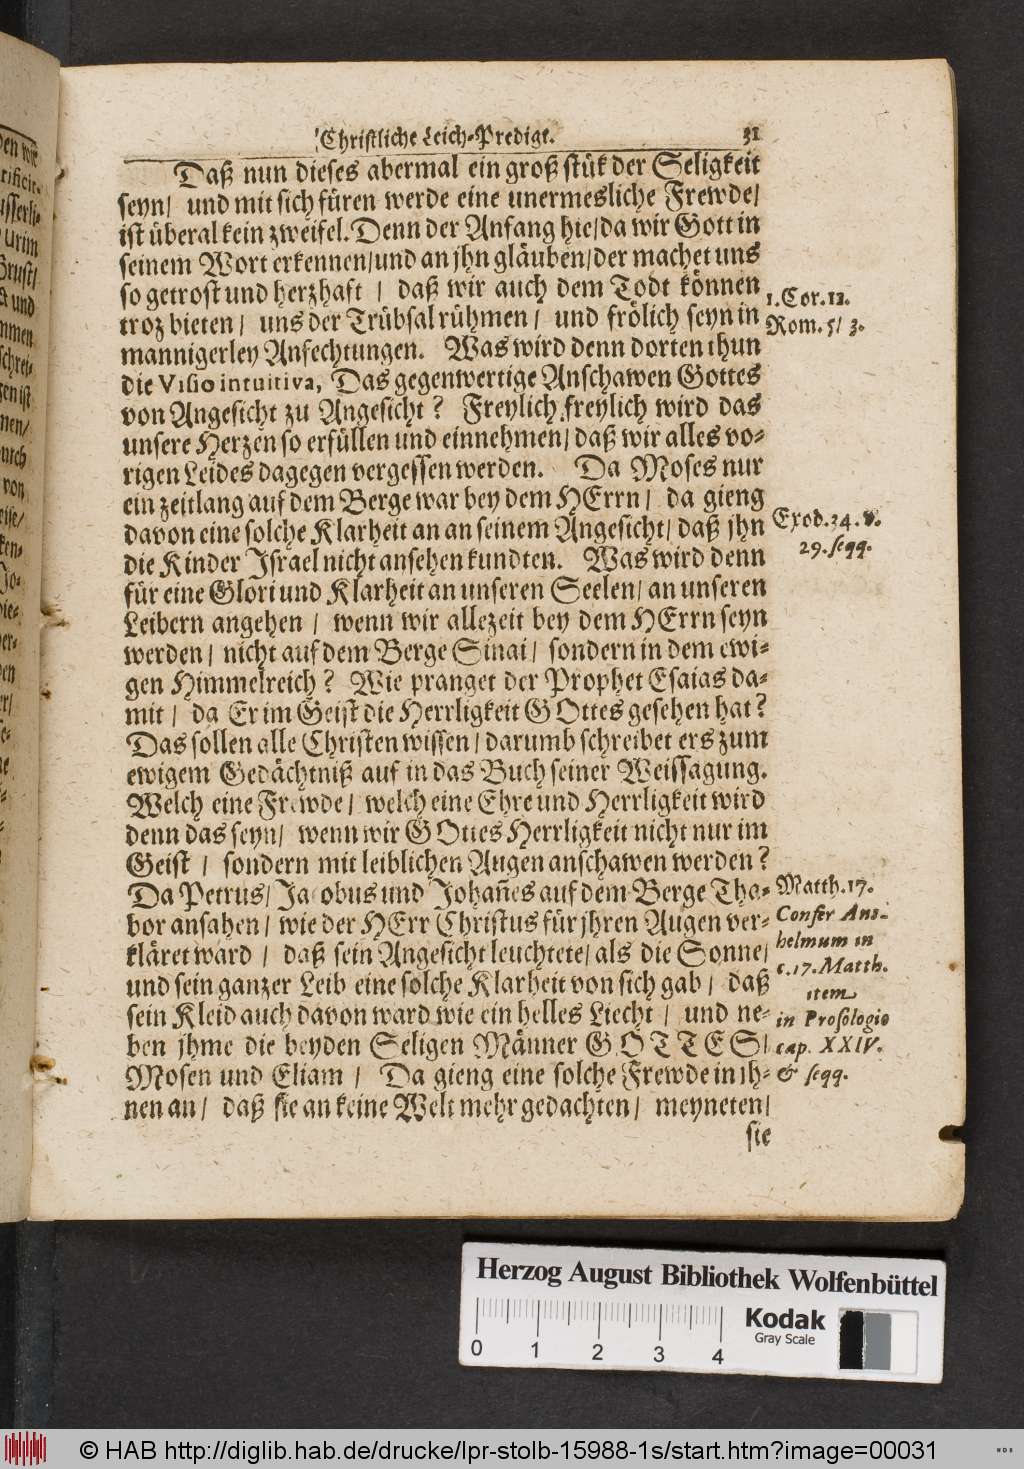 Christliche Leich-Predigt. 31
Daß nun dieses abermal ein groß stük der Seligkeit
seyn/ und mit sich füren werde eine unermesliche Frewde/
ist überal kein zweifel. Denn der Anfang hie/ da wir Gott in
seinem Wort erkennen/ und an jhn gläuben/ der machet uns
so getrost und herzhaft / daß wir auch dem Todt können
troz bieten/ uns der Trübsal rühmen/ und frölich seyn in
mannigerley Anfechtungen. Was wird denn dorten thun
die Visio intuitiva, Das gegenwertige Anschawen Gottes
von Angesicht zu Angesicht? Freylich freylich wird das
unsere Herzen so erfüllen und einnehmen/ daß wir alles vo-
rigen Leides dagegen vergessen werden. Da Moses nur
ein zeitlang auf dem Berge war bey dem HErrn/ da gieng
davon eine solche Klarheit an an seinem Angesicht/ daß jhn
die Kinder Israel nicht ansehen kundten. Was wird denn
für eine Glori und Klarheit an unseren Seelen/ an unseren
Leibern angehen / wenn wir allezeit bey dem HErrn seyn
werden/ nicht auf dem Berge Sinai/ sondern in dem ewi-
gen Himmelreich? Wie pranget der Prophet Esaias da-
mit / da Er im Geist die Herrligkeit GOttes gesehen hat?
Das sollen alle Christen wissen/ darumb schreibet ers zum
ewigem Gedächtniß auf in das Buch seiner Weissagung.
Welch eine Frewde/ welch eine Ehre und Herrligkeit wird
denn das seyn/ wenn wir GOttes Herrligkeit nicht nur im
Geist / sondern mit leiblichen Augen anschawen werden?
Da Petrus/ Jacobus und Johañes auf dem Berge Tha-
bor ansahen/ wie der HErr Christus für jhren Augen ver-
kläret ward / daß sein Angesicht leuchtete/ als die Sonne/
und sein ganzer Leib eine solche Klarheit von sich gab/ daß
sein Kleid auch davon ward wie ein helles Liecht / und ne-
ben jhme die beyden Seligen Männer GOTTES/
Mosen und Eliam / Da gieng eine solche Frewde in jh-
nen an/ daß sie an keine Welt mehr gedachten/ meyneten/
sie
1. Cor. 12.
Rom. 5/ 3.
Exod. 34. v.
29. seqq.
Matth. 17.
Confer Ans-
helmum in
c. 17. Matth.
item
in Prosologio
cap. XXIV.
& seqq.
Herzog August Bibliothek Wolfenbüttel
Kodak
Gray Scale
0 1 2 3 4
© HAB http://diglib.hab.de/drucke/lpr-stolb-15988-1s/start.htm?image=00031